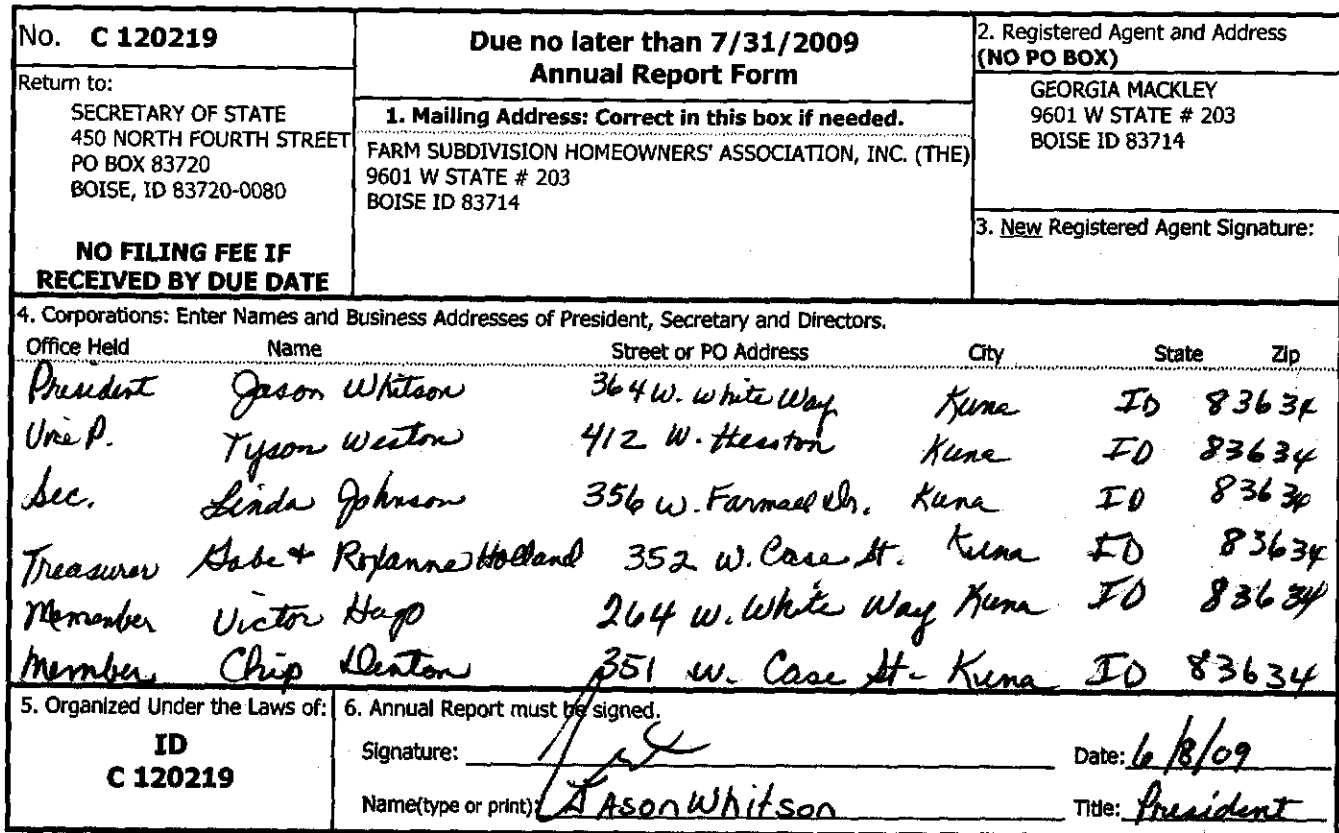 No. C 120219
Return to:
SECRETARY OF STATE
450 NORTH FOURTH STREET
PO BOX 83720
BOISE, ID 83720-0080
NO FILING FEE IF
RECEIVED BY DUE DATE
Due no later than 7/31/2009
Annual Report Form
1. Mailing Address: Correct in this box if needed.
FARM SUBDIVISION HOMEOWNERS' ASSOCIATION, INC. (THE)
9601 W STATE # 203
BOISE ID 83714
2. Registered Agent and Address
(NO PO BOX)
GEORGIA MACKLEY
9601 W STATE # 203
BOISE ID 83714
3. New Registered Agent Signature:
4. Corporations: Enter Names and Business Addresses of President, Secretary and Directors.
Office Held Name Street or PO Address City State Zip
President Jason Whitson 364 W. White Way Kuna ID 83634
Vice P. Tyson Weston 412 W. Hesston Kuna ID 83634
Sec. Linda Johnson 356 W. Dr. Kuna ID 83634
Treasurer Gabe + Roxanne Holland 352 W. Case St. Kuna ID 83634
Memember Victor Hugo 264 W. White Way Kuna ID 83634
Member Chip Denton 351 W. Case St- Kuna ID 83634
5. Organized Under the Laws of:
ID
C 120219
6. Annual Report must be signed.
Signature:
Date: 6/8/09
Name(type or print): Jason Whitson
Title: President